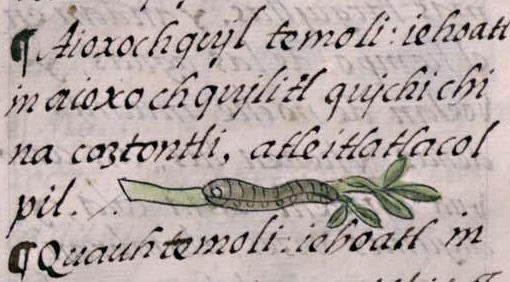 ¶ Aioxochquijl temoli: iehoatl
in aioxochquijlitl qujchichi
na coztontli, atleitlatlacol
pil.
¶ Quauhtemoli: iehoatl in